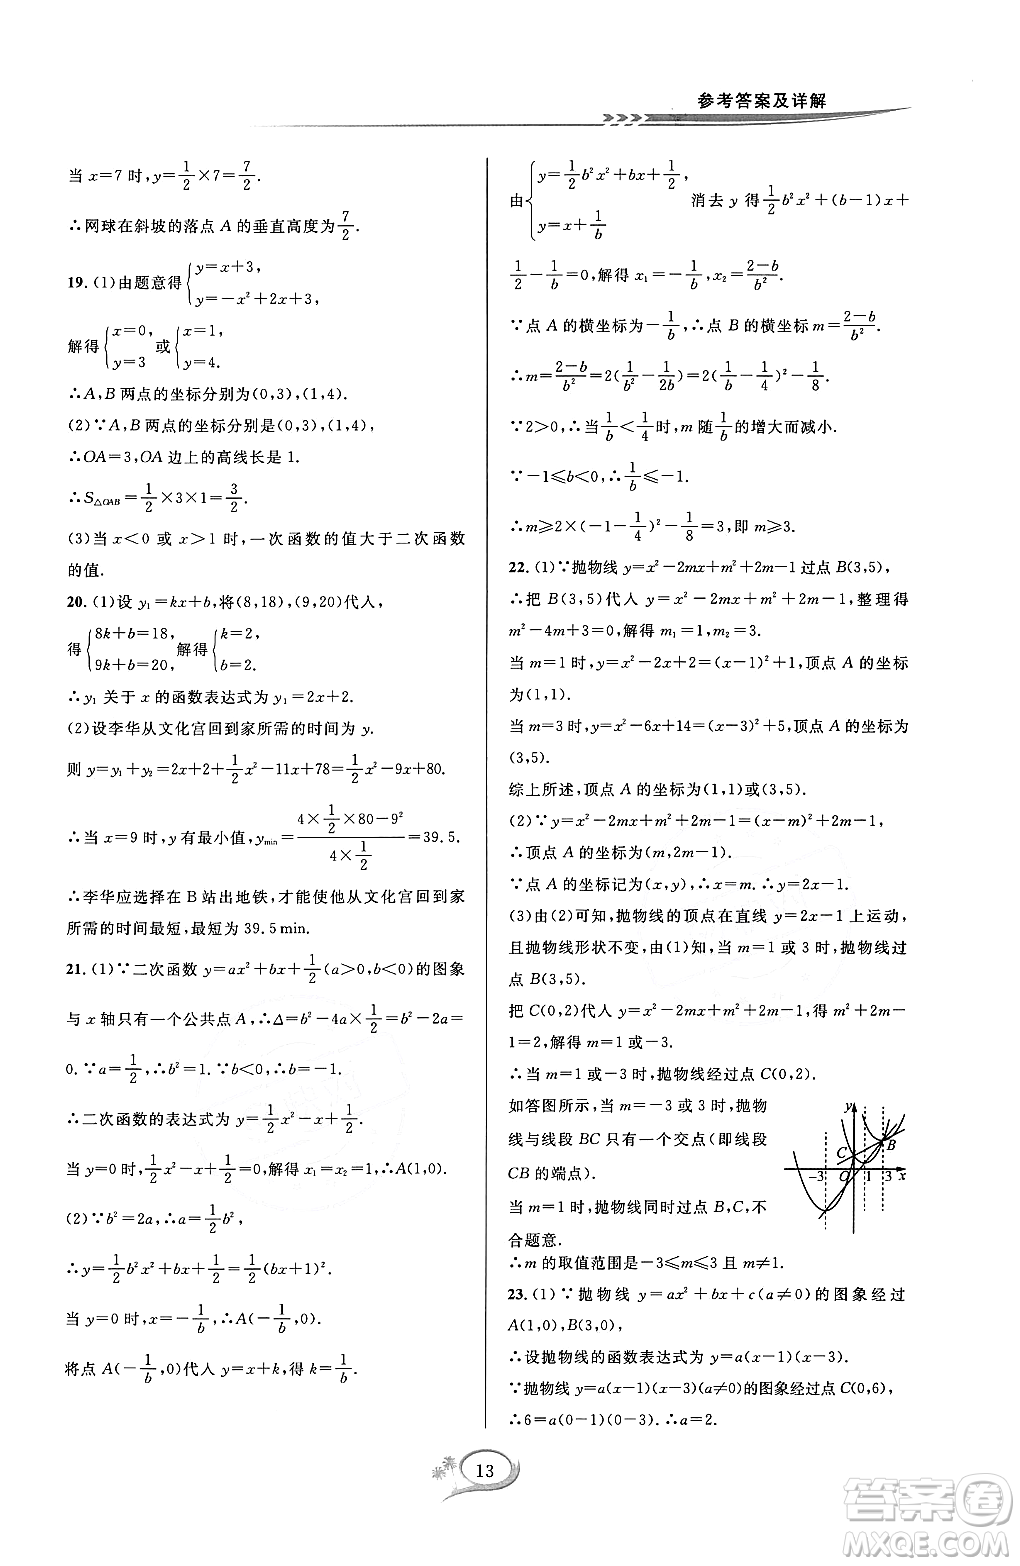 参考答案及详解
当 x=7 时,y=1/2×7=7/2.
∴网球在斜坡的落点 A 的垂直高度为7/2.
19. (1)由题意得{y=x+3, y=-x²+2x+3,
解得{x=0, y=3 或{x=1, y=4.
∴A,B 两点的坐标分别为(0,3),(1,4).
(2)∵A,B 两点的坐标分别是(0,3),(1,4),
∴OA=3,OA 边上的高线长是 1.
∴S△OAB=1/2×3×1=3/2.
(3)当 x<0 或 x>1 时,一次函数的值大于二次函数
的值.
20. (1)设 y₁=kx+b,将(8,18),(9,20)代入,
得{8k+b=18, 9k+b=20, 解得{k=2, b=2.
∴y₁ 关于 x 的函数表达式为 y₁=2x+2.
(2)设李华从文化宫回到家所需的时间为 y.
则 y=y₁+y₂=2x+2+1/2x²-11x+78=1/2x²-9x+80.
∴当 x=9 时,y 有最小值,y_min=(4×1/2×80-9²)/(4×1/2)=39.5.
∴李华应选择在 B 站出地铁,才能使他从文化宫回到家
所需的时间最短,最短为 39.5 min.
21. (1)∵二次函数 y=ax²+bx+1/2(a>0,b<0)的图象
与 x 轴只有一个公共点 A,∴Δ=b²-4a×1/2=b²-2a=
0.∵a=1/2,∴b²=1.∵b<0,∴b=-1.
∴二次函数的表达式为 y=1/2x²-x+1/2.
当 y=0 时,1/2x²-x+1/2=0,解得 x₁=x₂=1,∴A(1,0).
(2)∵b²=2a,∴a=1/2b²,
∴y=1/2b²x²+bx+1/2=1/2(bx+1)².
当 y=0 时,x=-1/b,∴A(-1/b,0).
将点 A(-1/b,0)代入 y=x+k,得 k=1/b.
由{y=1/2b²x²+bx+1/2, y=x+1/b 消去 y 得1/2b²x²+(b-1)x+
1/2-1/b=0,解得 x₁=-1/b,x₂=(2-b)/b².
∵点 A 的横坐标为-1/b,∴点 B 的横坐标 m=(2-b)/b².
∴m=(2-b)/b²=2(1/b²-1/2b)=2(1/b-1/4)²-1/8.
∵2>0,∴当1/b<1/4时,m 随1/b的增大而减小.
∵-1≤b<0,∴1/b≤-1.
∴m≥2×(-1-1/4)²-1/8=3,即 m≥3.
22. (1)∵抛物线 y=x²-2mx+m²+2m-1 过点 B(3,5),
∴把 B(3,5)代入 y=x²-2mx+m²+2m-1,整理得
m²-4m+3=0,解得 m₁=1,m₂=3.
当 m=1 时,y=x²-2x+2=(x-1)²+1,顶点 A 的坐标
为(1,1).
当 m=3 时,y=x²-6x+14=(x-3)²+5,顶点 A 的坐标为
(3,5).
综上所述,顶点 A 的坐标为(1,1)或(3,5).
(2)∵y=x²-2mx+m²+2m-1=(x-m)²+2m-1,
∴顶点 A 的坐标为(m,2m-1).
∵点 A 的坐标记为(x,y),∴x=m.∴y=2x-1.
(3)由(2)可知,抛物线的顶点在直线 y=2x-1 上运动,
且抛物线形状不变,由(1)知,当 m=1 或 3 时,抛物线过
点 B(3,5).
把 C(0,2)代入 y=x²-2mx+m²+2m-1,得 m²+2m-
1=2,解得 m=1 或-3.
∴当 m=1 或-3 时,抛物线经过点 C(0,2).
如答图所示,当 m=-3 或 3 时,抛物
线与线段 BC 只有一个交点(即线段
CB 的端点).
当 m=1 时,抛物线同时过点 B,C,不
合题意.
y
C
B
-3
O
1
3
x
∴m 的取值范围是-3≤m≤3 且 m≠1.
23. (1)∵抛物线 y=ax²+bx+c(a≠0)的图象经过
A(1,0),B(3,0),
∴设抛物线的函数表达式为 y=a(x-1)(x-3).
∵抛物线 y=a(x-1)(x-3)(a≠0)的图象经过点 C(0,6),
∴6=a(0-1)(0-3).∴a=2.
13
答案圈
MXQE.COM